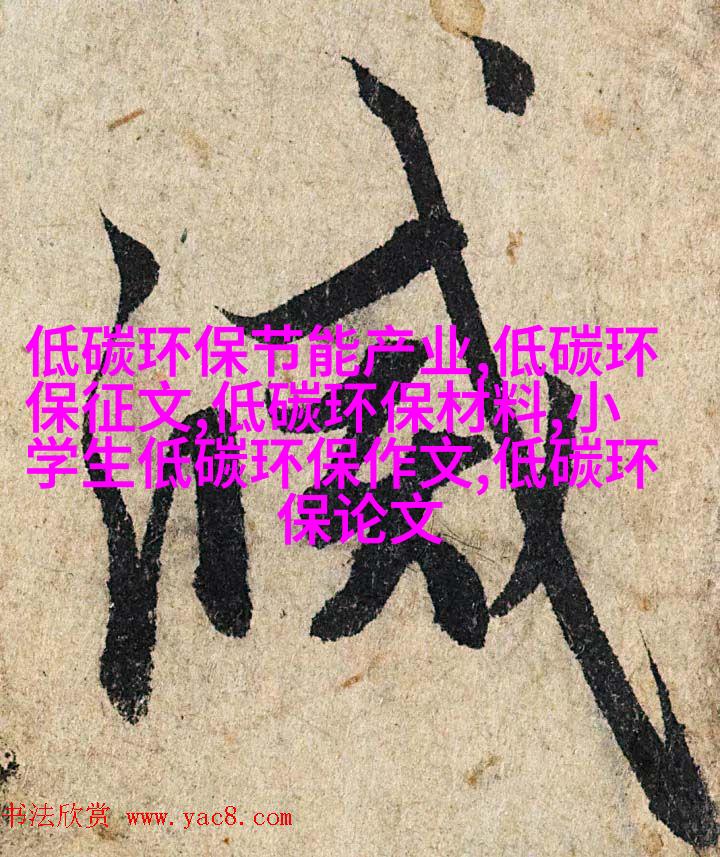 减
低碳环保节能产业,低碳环
保征文,低碳环保材料,小
学生低碳环保作文,低碳环
保论文
书法欣赏 www.yac8.com